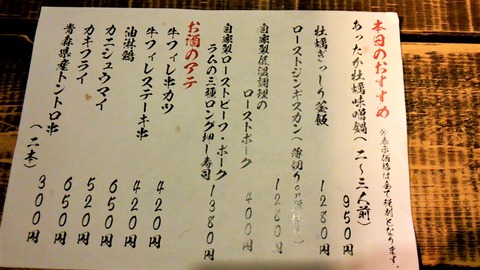 本日のおすすめ
※表示価格は全て税別となります。
あったか牡蠣味噌鍋(二~三人前) 950円
牡蠣ぎっしり釜飯 1280円
ローストジンギスカン(薄切り 1280円
自家製低温調理の
ローストポーク 400円
自家製ローストビーフ・ポーク
ラムの三種ロング刺し寿司 1380円
お酒のアテ
牛フィレ串カツ 420円
牛フィレステーキ串 420円
油淋鶏 650円
カニシュウマイ 520円
カキフライ 650円
青森県産トントロ串(二本) 300円